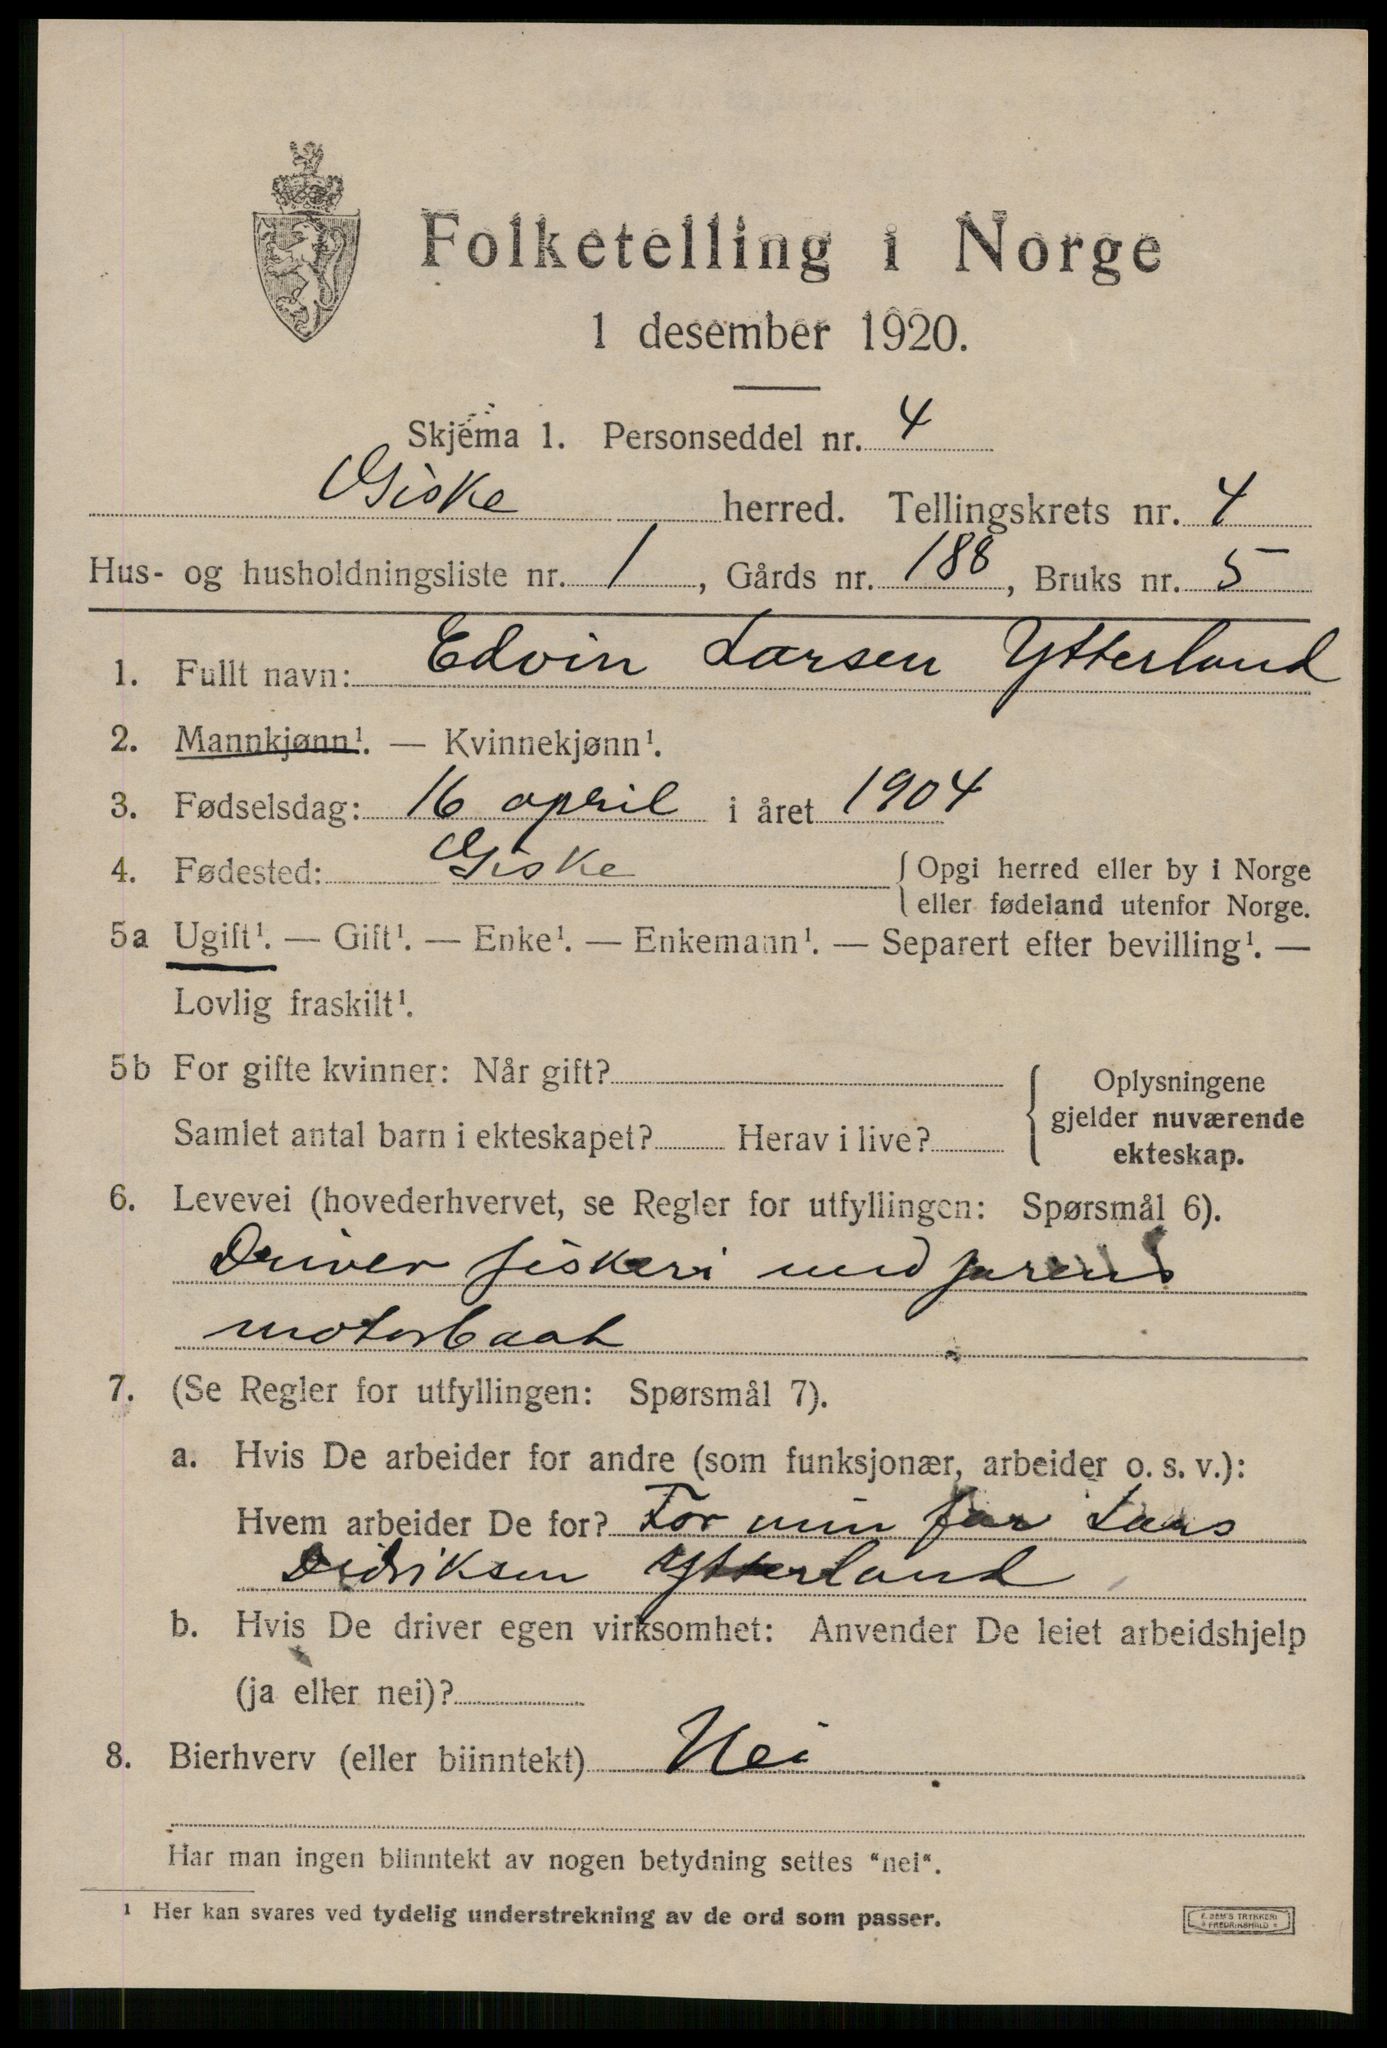 Folketelling i Norge
1 desember 1920.
Skjema 1. Personseddel nr. 4
Giske herred. Tellingskrets nr. 4
Hus- og husholdningsliste nr. 1, Gårds nr. 188, Bruks nr. 5
1. Fullt navn: Edvin Larsen Ytterland
2. Mannkjønn¹. — Kvinnekjønn¹.
3. Fødselsdag: 16 april i året 1904
4. Fødested: Giske { Opgi herred eller by i Norge
eller fødeland utenfor Norge.
5a Ugift¹. — Gift¹. — Enke¹. — Enkemann¹. — Separert efter bevilling¹. —
Lovlig fraskilt¹.
5b For gifte kvinner: Når gift?
Samlet antal barn i ekteskapet? Herav i live?
Oplysningene
gjelder nuværende
ekteskap.
6. Levevei (hovederhvervet, se Regler for utfyllingen: Spørsmål 6).
Driver fiskeri med farens
motorbaat
7. (Se Regler for utfyllingen: Spørsmål 7).
a. Hvis De arbeider for andre (som funksjonær, arbeider o. s. v.):
Hvem arbeider De for? For min far Lars
Didriksen Ytterland
b. Hvis De driver egen virksomhet: Anvender De leiet arbeidshjelp
(ja eller nei)?
8. Bierhverv (eller biinntekt) Nei
Har man ingen biinntekt av nogen betydning settes "nei".
¹ Her kan svares ved tydelig understrekning av de ord som passer.
E. SEM'S TRYKKERI
FREDRIKSHALD